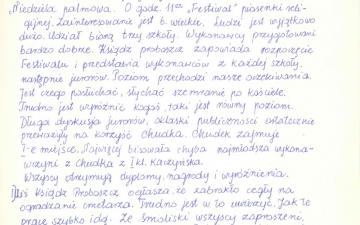 "Niedziela palmowa. O godz. 11⁰⁰ "Festiwal" piosenki reli-
gijnej. Zainteresowanie jest b. wielkie. Ludzi jest wyjątkowo
dużo. Udział biorą trzy szkoły. Wykonawcy przygotowani
bardzo dobrze. Ksiądz proboszcz zapowiada rozpoczęcie
Festiwalu i przedstawia wykonawców z każdej szkoły,
następnie jurorów. Poziom przechodzi nasze oczekiwania.
Jest czego posłuchać, słychać szemranie po kościele.
Trudno jest wyróżnić kogoś, taki jest równy poziom.
Długa dyskusja jurorów, oklaski publiczności ostatecznie
przeważyły na korzyść Chudka. Chudek zajmuje
I-e miejsce. Najwięcej bisowała chyba najmłodsza wykona-
wczyni z Chudka z I kl. Kaczyńska.
Wszyscy otrzymują dyplomy, nagrody i wyróżnienia.
Ksiądz Proboszcz ogłasza, że zabrakło cegły na
ogradzanie cmentarza. Trudno jest w to uwierzyć, jak te
prace szybko idą. Ze Smoliski wszyscy zaproszeni,